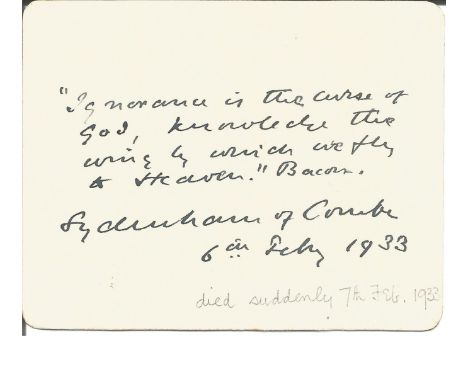 "Ignorance is the curse of
God, knowledge the
wing by which we fly
to Heaven." Bacon.
Sydenham of Combe
6th Feby 1933
died suddenly 7th Feb. 1933